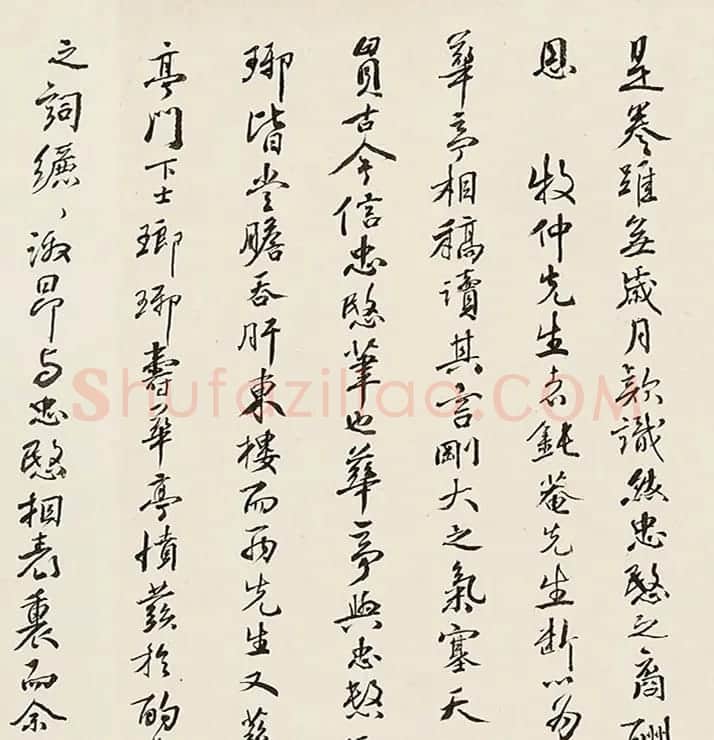 是卷雖無歲月款識然忠愍之裔酬
恩 牧仲先生鈍菴先生斷以為
華亭相稿讀其言剛大之氣塞天
貫古今信忠愍筆也華亭與忠愍
琊皆嘗膽吞肝東樓而兩先生又
亭門下士瑯琊壽華亭憤發於酌
之詞纚々激昂与忠愍相表裏而余
Shufaziliao.COM